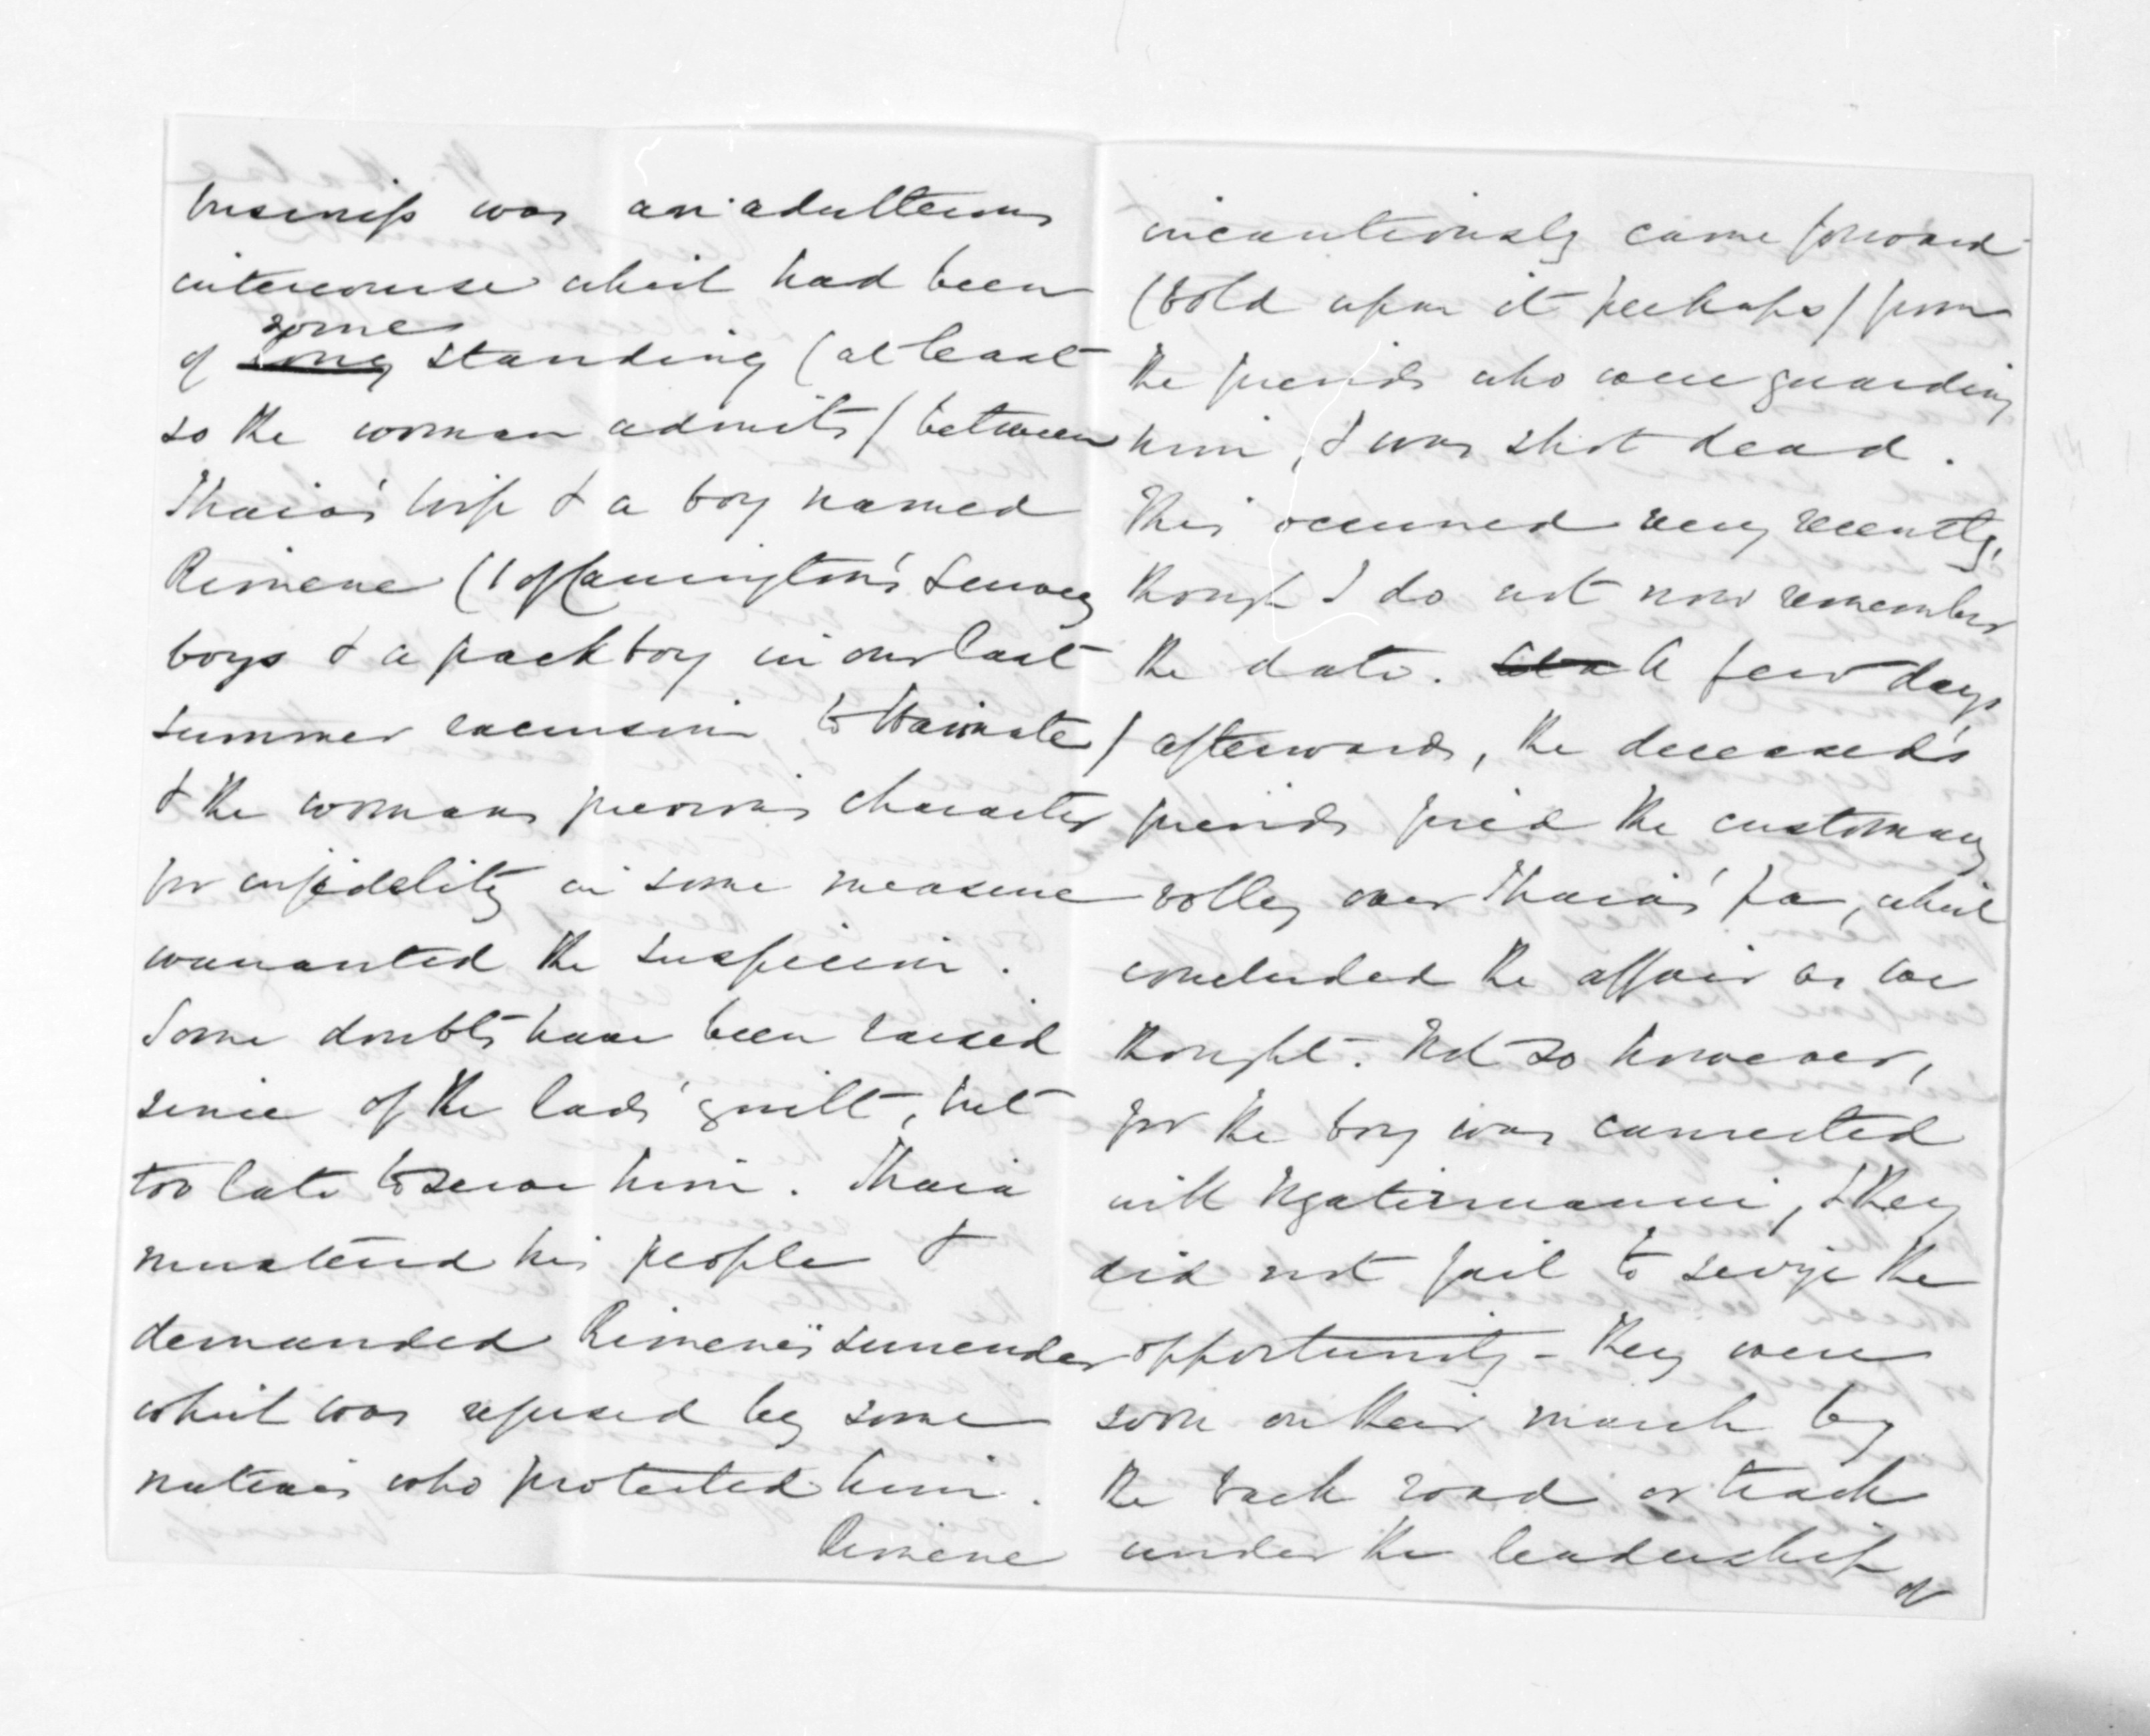 business was an adulterous
intercourse which had been
some
of long standing (at least
so the woman admits) between
Ihaia's wife & a boy named
Rimene (1 of Carrington's Survey
boys & a pack boy in our last
summer excursion to Waimate)
& the womans previous character
for infidelity in some measure
warranted the suspicion.
Some doubts have been raised
since of the lads' guilt, but
too late to serve him. Ihaia
mustered his people &
demanded Rimene's surrender
which was refused by some
natives who protected him.
Rimene
incautiously came forward
(told upon it perhaps) from
the friends who were guarding
him, & was shot dead.
This occurred very recently,
though I do not now remember
the date. A few days
afterwards, the deceased's
friends fired the customary
volley over Ihaia's pa, which
concluded the affair as we
thought. Not so however,
for the boy was connected
with Ngatiruanui, & they
did not fail to seize the
opportunity - they were
soon on their march by
the back road or track
under the leadership of